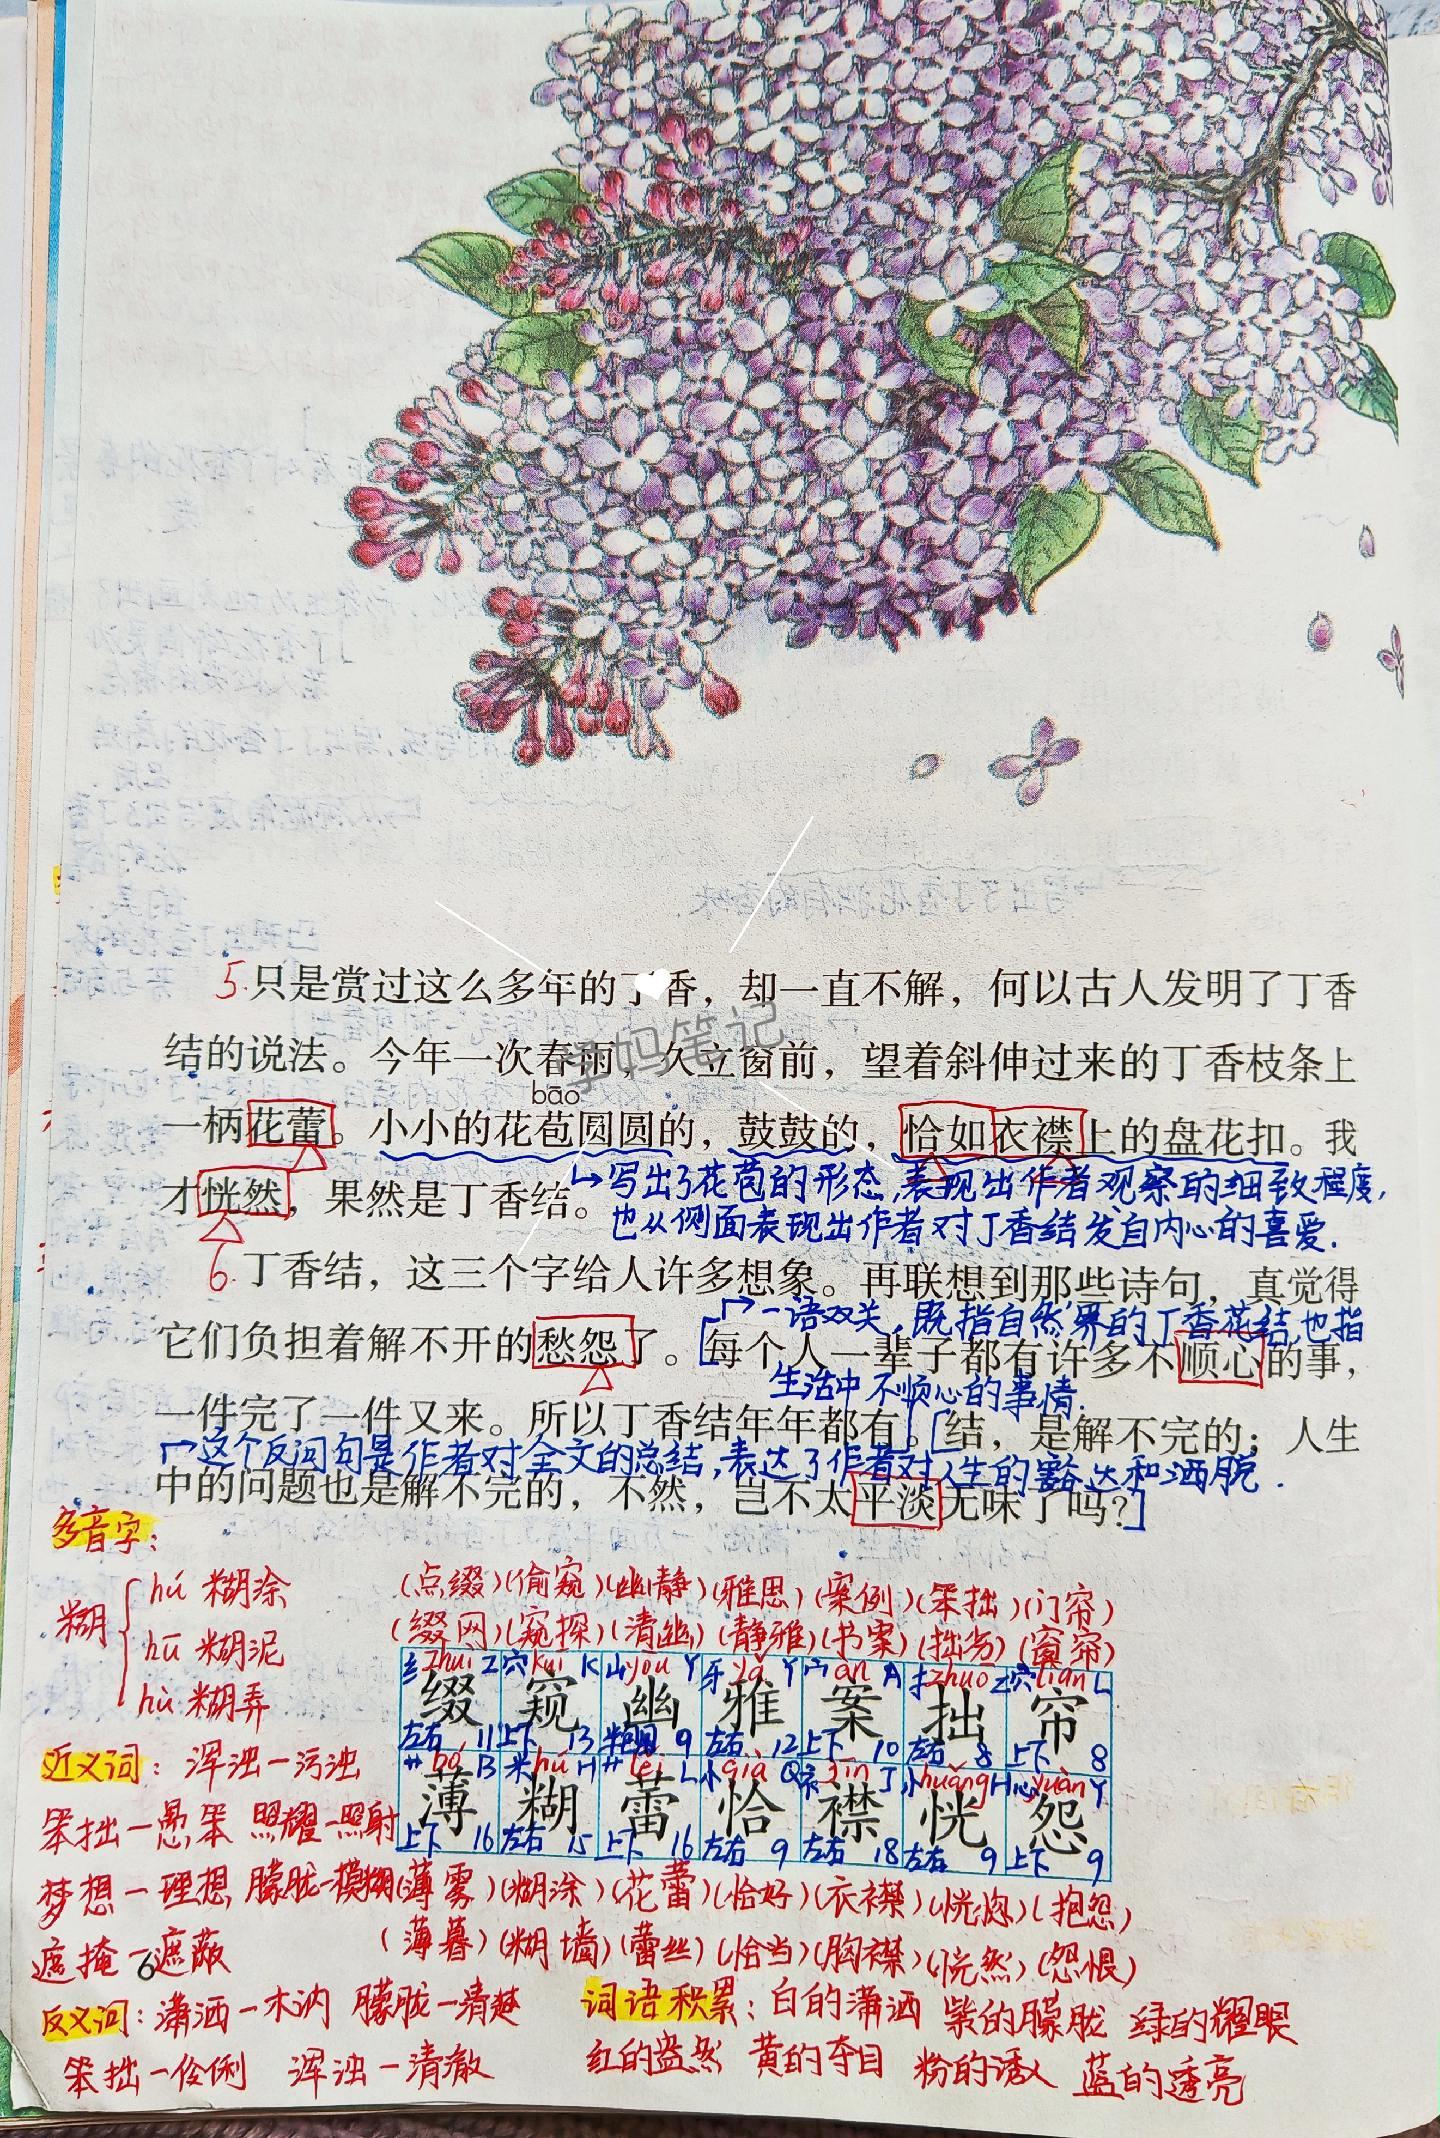 5.只是赏过这么多年的丁香，却一直不解，何以古人发明了丁香
学妈笔记
结的说法。今年一次春雨，久立窗前，望着斜伸过来的丁香枝条上
bāo
一柄花蕾。小小的花苞圆圆的，鼓鼓的，恰如衣襟上的盘花扣。我
才恍然，果然是丁香结。
写出了花苞的形态，表现出作者观察的细致程度，
也从侧面表现出作者对丁香结发自内心的喜爱.
6.丁香结，这三个字给人许多想象。再联想到那些诗句，真觉得
一语双关，既指自然界的丁香花结,也指
它们负担着解不开的愁怨了。[每个人一辈子都有许多不顺心的事，
生活中不顺心的事情.
一件完了一件又来。所以丁香结年年都有。[结，是解不完的；人生
这个反问句是作者对全文的总结,表达了作者对人生的豁达和洒脱.
中的问题也是解不完的，不然，岂不太平淡无味了吗？]
多音字：
糊 hú 糊涂
hū 糊泥
hù 糊弄
(点缀)(偷窥)(幽静)(雅思)(案例)(笨拙)(门帘)
(缀网)(窥探)(清幽)(静雅)(书案)(拙劣)(窗帘)
纟 zhuì Z 穴 kuī K 山 yōu Y 牙 yǎ Y 宀 àn A 扌 zhuō Z 穴 lián L
缀 窥 幽 雅 案 拙 帘
左右 11 上下 13 半包围 9 左右 12 上下 10 左右 8 上下 8
艹 bó B 米 hú H 艹 lěi L 忄 qià Q 衤 jīn J 忄 huǎng H 心 yuàn Y
薄 糊 蕾 恰 襟 恍 怨
上下 16 左右 15 上下 16 左右 9 左右 18 左右 9 上下 9
(薄雾)(糊涂)(花蕾)(恰好)(衣襟)(恍惚)(抱怨)
(薄暮)(糊墙)(蕾丝)(恰当)(胸襟)(恍然)(怨恨)
近义词：浑浊—污浊
笨拙—愚笨 照耀—照射
梦想—理想 朦胧—模糊
遮掩—遮蔽
6
反义词：潇洒—木讷 朦胧—清楚
笨拙—伶俐 浑浊—清澈
词语积累：白的潇洒 紫的朦胧 绿的耀眼
红的盎然 黄的夺目 粉的诱人 蓝的透亮